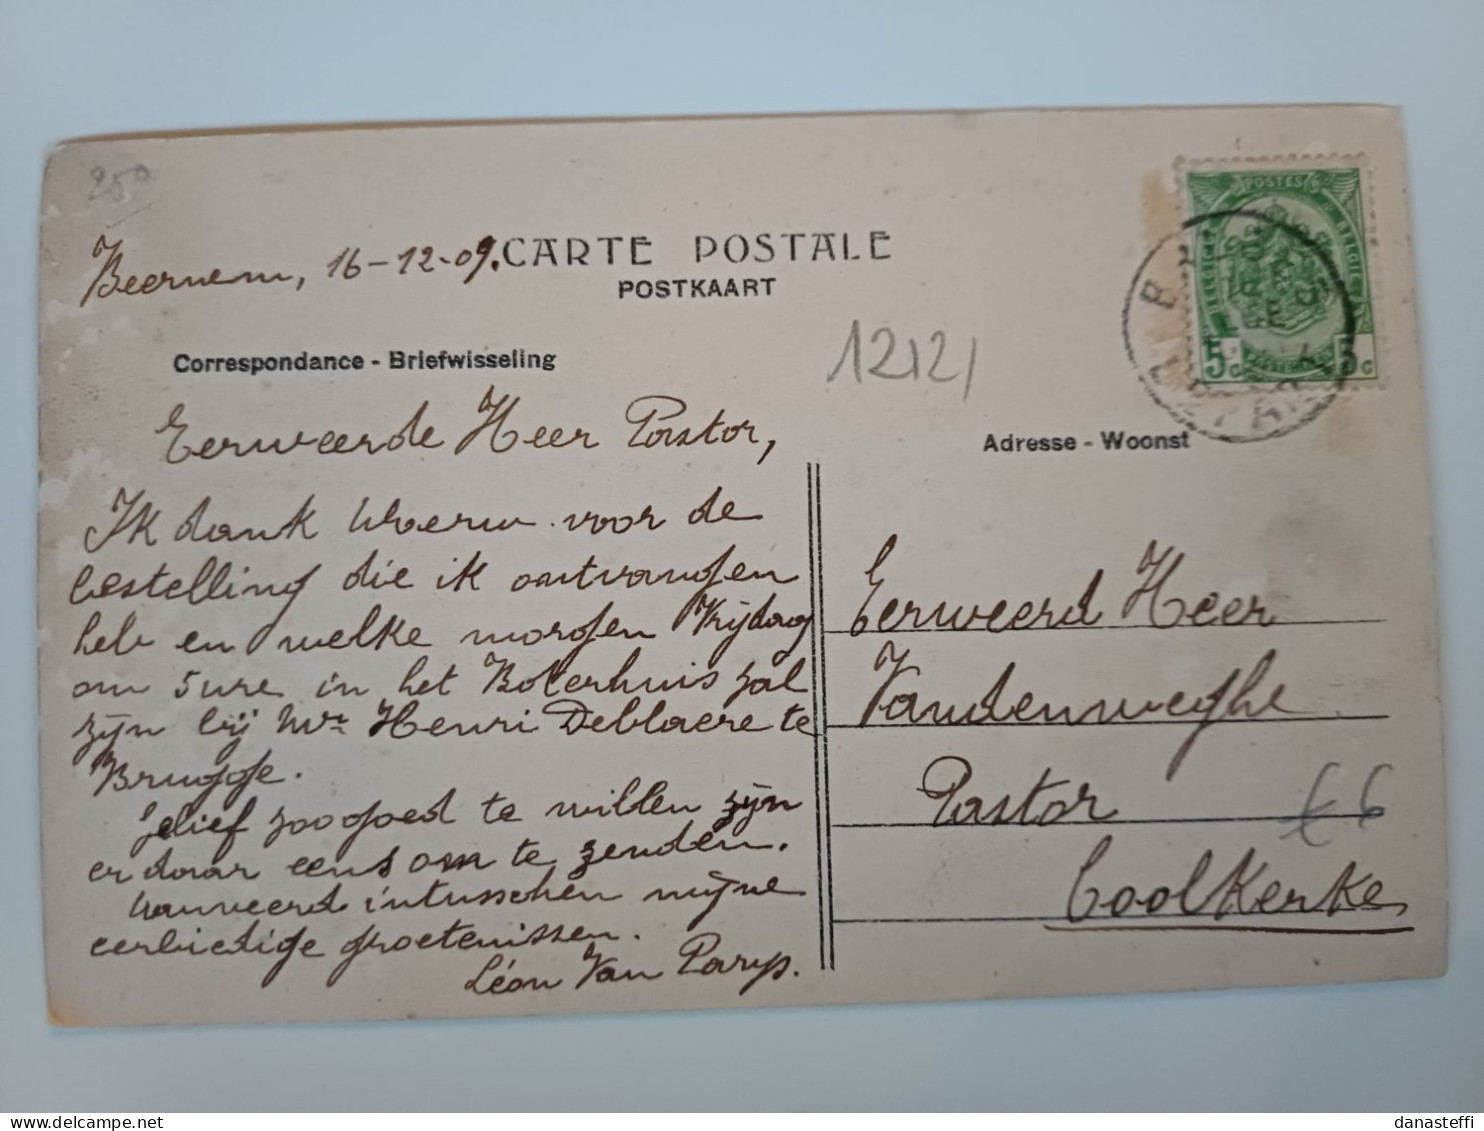 250
Beernem, 16-12-09.
CARTE POSTALE
POSTKAART
Correspondance - Briefwisseling
1212/
Eerweerde Heer Pastor,
Ik dank Uw eerw. voor de
bestelling die ik ontvangen
heb en welke morgen Vrijdag
om 5 ure in het Boterhuis zal
zijn bij Mr Henri Deblaere te
Brugge.
Gelief zoo goed te willen zijn
er daar eens om te zenden.
Aanveerd intusschen mijne
eerbiedige groetenissen.
Léon Van Parys.
POSTES
BELGIQUE
BELGIË
5c
5c
Adresse - Woonst
Eerweerd Heer
Vandenweghe
Pastor
€6
Coolkerke
Delcampe.net
danasteffi